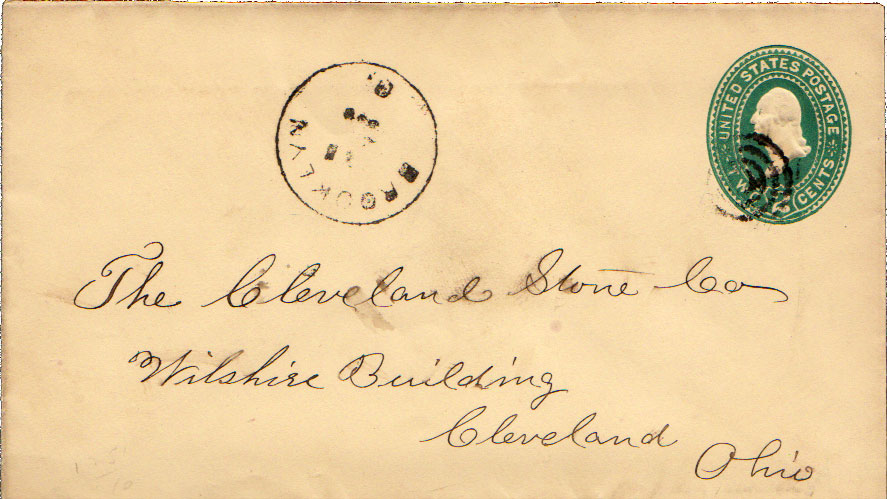 UNITED STATES POSTAGE
TWO CENTS
BROOKLYN
O.
The Cleveland Stone Co
Wilshire Building
Cleveland
Ohio